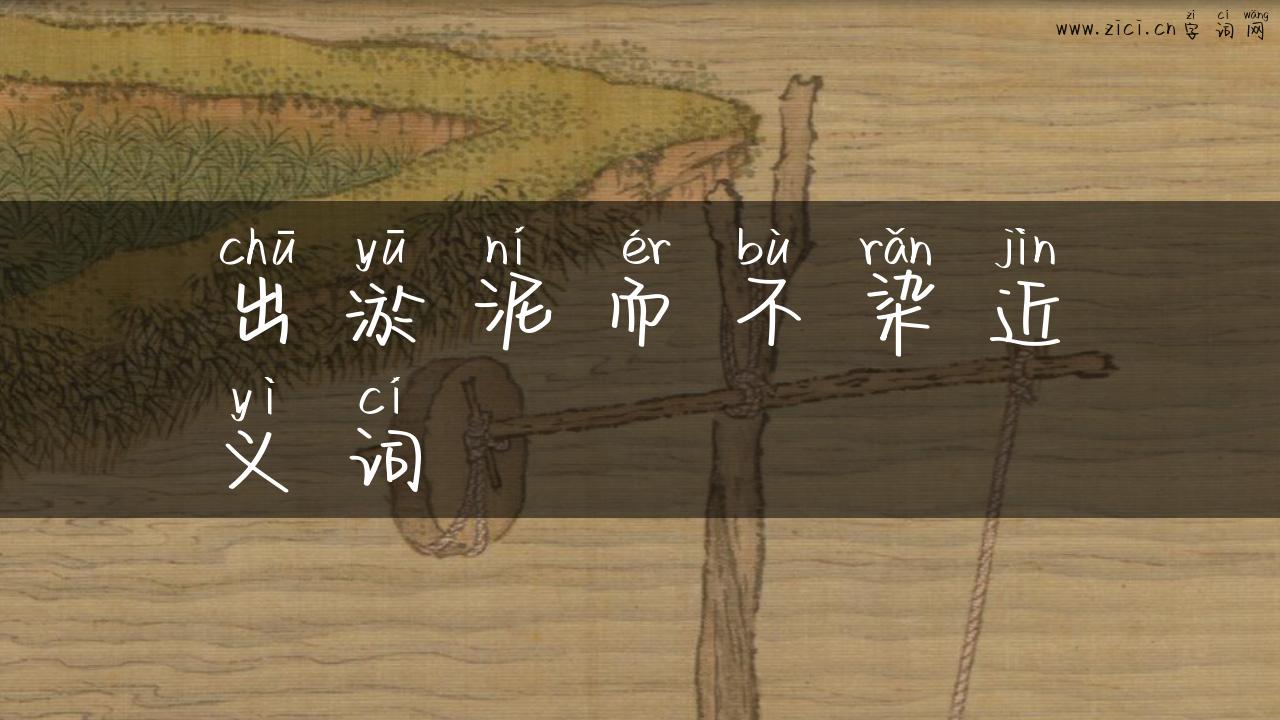 zì cí wǎng
www.zici.cn字词网
chū yū ní ér bù rǎn jìn
出淤泥而不染近
yì cí
义词